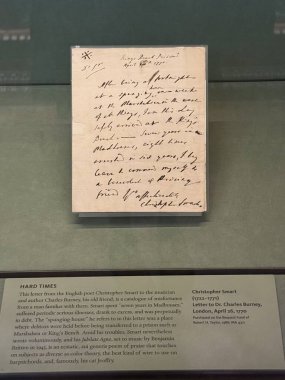 Kings Bench Prison
April 26th 1770
Dr Sr.
After being a fortnight
at a spunging house one week
at the Marshalsea in the want
of all things, I am this day
safely arrived at the King's
Bench — Seven years in
Madhouses, eight times
arrested in six years, I beg
leave to commend myself to
a benevolent &
friend. Yrs affectionately
Christopher Smart
HARD TIMES
This letter from the English poet Christopher Smart to the musician
and author Charles Burney, his old friend, is a catalogue of misfortunes
from a man familiar with them. Smart spent "seven years in Madhouses,"
suffered periodic serious illnesses, drank to excess, and was perpetually
in debt. The "spunging house" he refers to in this letter was a place
where debtors were held before being transferred to a prison such as
Marshalsea or King's Bench. Amid his troubles, Smart nevertheless
wrote voluminously, and his Jubilate Agno, set to music by Benjamin
Britten in 1943, is an ecstatic, sui generis poem of praise that touches
on subjects as diverse as color theory, the best kind of wire to use on
harpsichords, and, famously, his cat Jeoffry.
Christopher Smart
(1722–1771)
Letter to Dr. Charles Burney,
London, April 26, 1770
Purchased on the Fellows Fund
Robert H. Taylor, 1968; MA